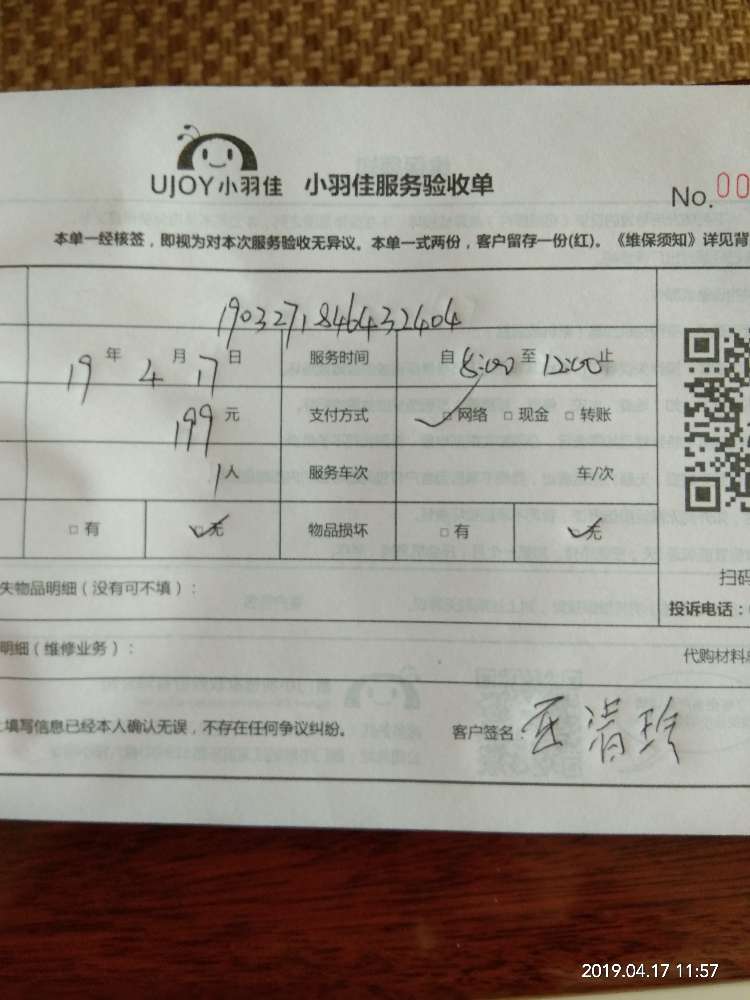 UJOY小羽佳 小羽佳服务验收单
No.00
本单一经核签，即视为对本次服务验收无异议。本单一式两份，客户留存一份(红)。《维保须知》详见背
1903271846432404
19年4月17日 服务时间 自8:00至12:00止
199元 支付方式 ☑网络 □现金 □转账
1人 服务车次 车/次
□有 ☑无 物品损坏 □有 ☑无
扫码
失物品明细（没有可不填）：
投诉电话：
明细（维修业务）：
代购材料
填写信息已经本人确认无误，不存在任何争议纠纷。 客户签名：
2019.04.17 11:57